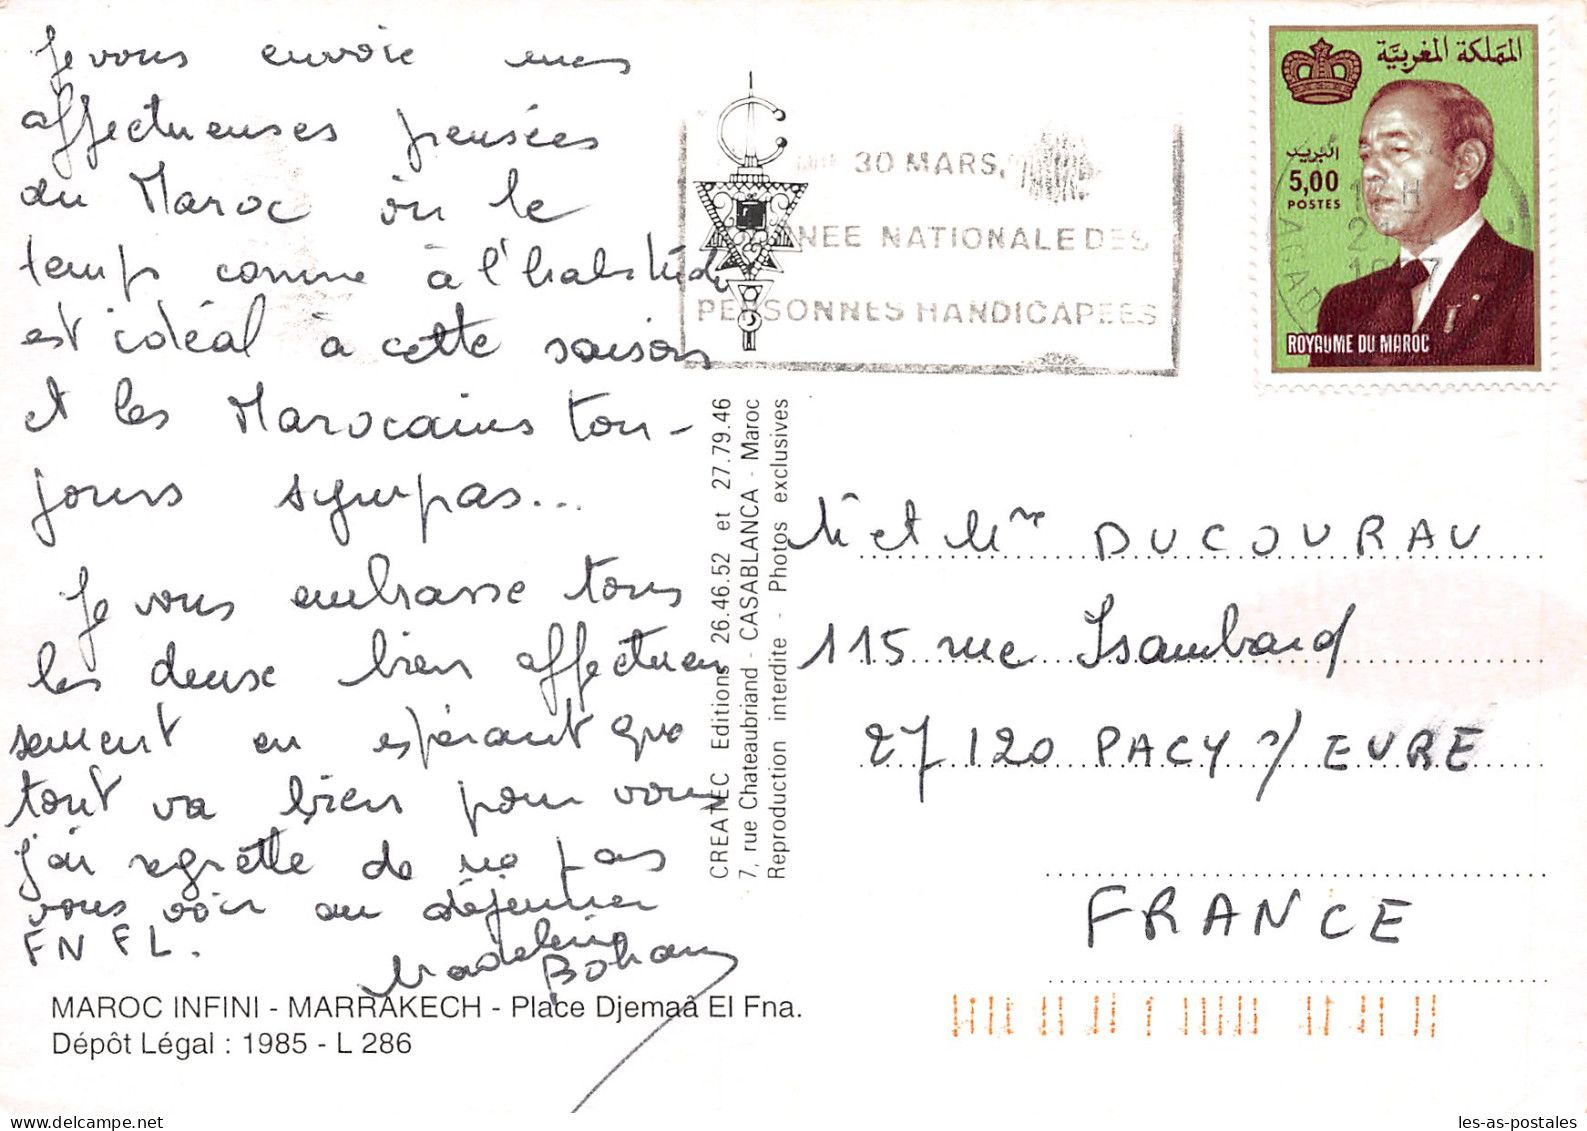 Je vous envoie mes
affectueuses pensées
du Maroc où le
temps comme à l'habitude
est idéal à cette saison
et les Marocains tou-
jours sympas...
Je vous embrasse tous
les deux bien affectueu
sement en espérant que
tout va bien pour vous
j'ai regretté de ne pas
vous voir au déjeuner
FNFL.
Madeleine
MAROC INFINI - MARRAKECH - Place Djemaâ El Fna.
Dépôt Légal : 1985 - L 286
CREATEC Editions 26.46.52 et 27.79.46
7, rue Chateaubriand - CASABLANCA - Maroc
Reproduction interdite - Photos exclusives
30 MARS,
NEE NATIONALE DES
PERSONNES HANDICAPEES
المملكة المغربية
البريد
5,00
POSTES
ROYAUME DU MAROC
Mr et Mme DUCOURAU
115 rue Isambard
27120 PACY s/ EURE
FRANCE
delcampe.net
les-as-postales